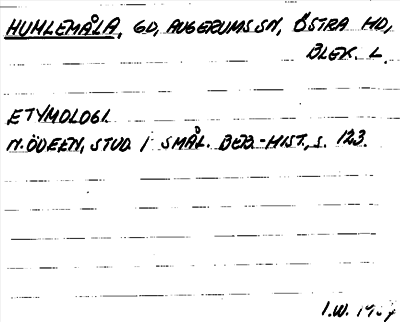 HUMLEMÅLA, GD, AUGERUMS SN, ÖSTRA HD,
BLEK. L.
ETYMOLOGI
N. ÖDEEN, STUD. I SMÅL. BEB.-HIST., S. 123.
I.W.